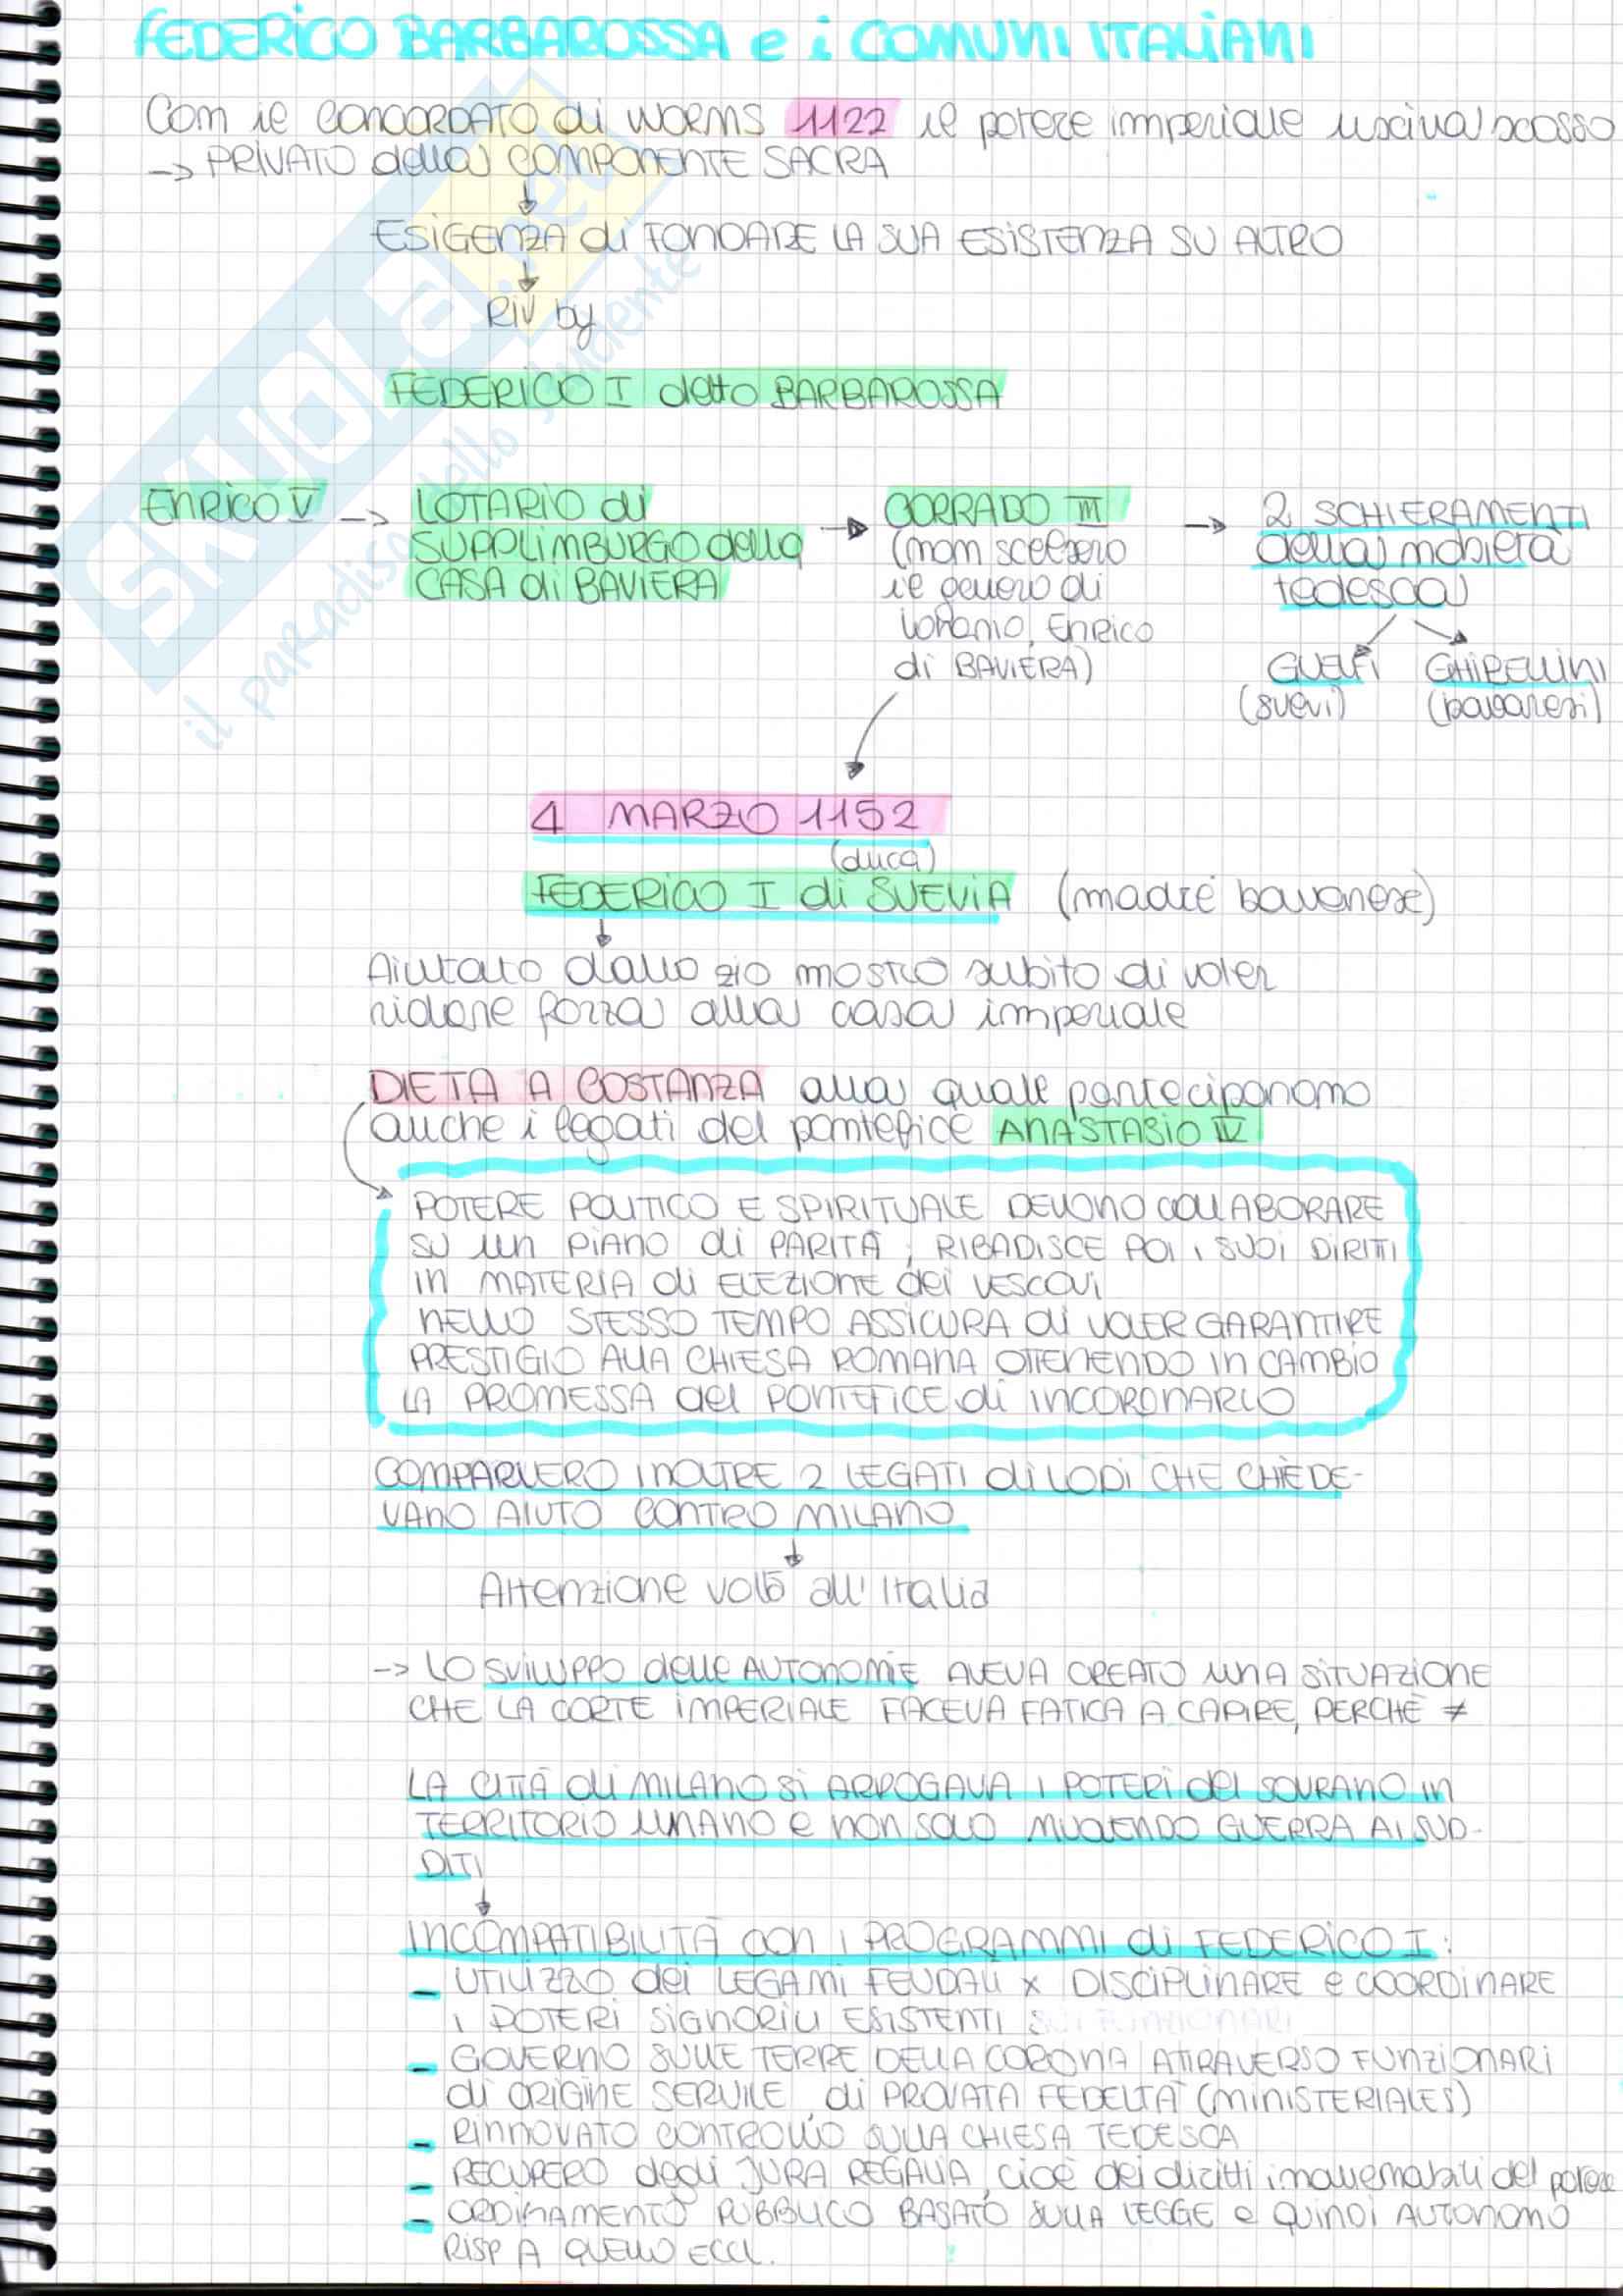 FEDERICO BARBAROSSA e i COMUNI ITALIANI
Con il CONCORDATO di WORMS 1122 il potere imperiale usciva scosso
-> PRIVATO della COMPONENTE SACRA
ESIGENZA di FONDARE LA SUA ESISTENZA SU ALTRO
RIV by
FEDERICO I detto BARBAROSSA
ENRICO V -> LOTARIO di SUPPLIMBURGO della CASA di BAVIERA -> CORRADO III (non scelsero il genero di Lotario, ENRICO di BAVIERA) -> 2 SCHIERAMENTI della nobiltà tedesca
GUELFI GHIBELLINI
(svevi) (bavaresi)
4 MARZO 1152
(duca)
FEDERICO I di SVEVIA (madre bavarese)
Aiutato dallo zio mostrò subito di voler
ridare forza alla casa imperiale
DIETA A COSTANZA alla quale parteciparono
anche i legati del pontefice ANASTASIO IV
POTERE POLITICO E SPIRITUALE DEVONO COLLABORARE
SU UN PIANO di PARITÀ; RIBADISCE POI I SUOI DIRITTI
IN MATERIA di ELEZIONE dei VESCOVI
NELLO STESSO TEMPO ASSICURA di VOLER GARANTIRE
PRESTIGIO ALLA CHIESA ROMANA OTTENENDO IN CAMBIO
LA PROMESSA del PONTEFICE di INCORONARLO
COMPARVERO INOLTRE 2 LEGATI di LODI CHE CHIEDE-
VANO AIUTO CONTRO MILANO
Attenzione volò all'Italia
-> LO SVILUPPO delle AUTONOMIE AVEVA CREATO UNA SITUAZIONE
CHE LA CORTE IMPERIALE FACEVA FATICA A CAPIRE, PERCHÈ ≠
LA CITTÀ di MILANO SI ARROGAVA I POTERI del SOVRANO IN
TERRITORIO e NON SOLO MUOVENDO GUERRA AI SUD-
DITI
INCOMPATIBILITÀ con i PROGRAMMI di FEDERICO I:
- UTILIZZO dei LEGAMI FEUDALI x DISCIPLINARE e COORDINARE
I POTERI SIGNORILI ESISTENTI
- GOVERNO SULLE TERRE DELLA CORONA ATTRAVERSO FUNZIONARI
di ORIGINE SERVILE, di PROVATA FEDELTÀ (MINISTERIALES)
- RINNOVATO CONTROLLO SULLA CHIESA TEDESCA
- RECUPERO degli JURA REGALIA, cioè dei diritti inalienabili del potere
- ORDINAMENTO PUBBLICO BASATO SULLA LEGGE e QUINDI AUTONOMO
RISP A QUELLO ECCL.
SKUOLA.net
il paradiso dello studente